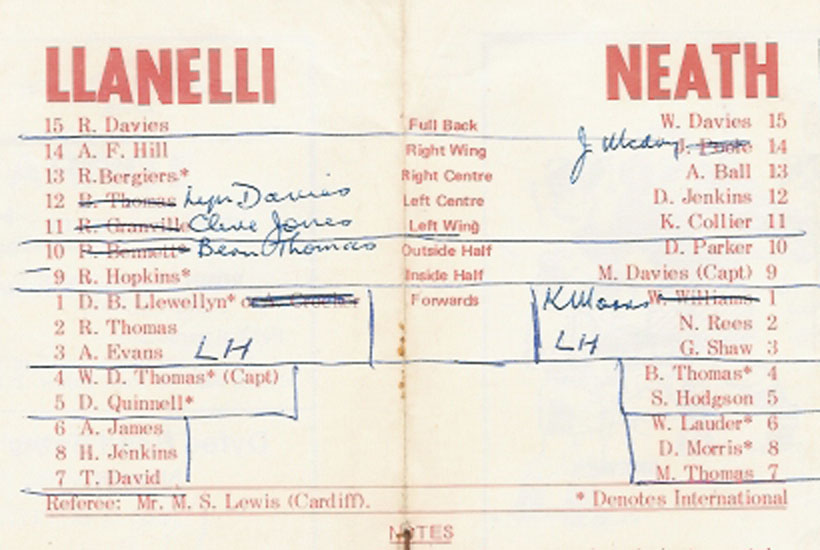 LLANELLI NEATH
15 R. Davies Full Back W. Davies 15
14 A. F. Hill Right Wing J. J. Poole 14
13 R.Bergiers* Right Centre A. Ball 13
12 B. Thomas Lyn Davies Left Centre D. Jenkins 12
11 R. Granville Clive Jones Left Wing K. Collier 11
10 P. Bennett* Bean Thomas Outside Half D. Parker 10
9 R. Hopkins* Inside Half M. Davies (Capt) 9
1 D. B. Llewellyn* or A. Crocker Forwards K W. Williams 1
2 R. Thomas N. Rees 2
3 A. Evans LH LH G. Shaw 3
4 W. D. Thomas* (Capt) B. Thomas* 4
5 D. Quinnell* S. Hodgson 5
6 A. James W. Lauder* 6
8 H. Jenkins D. Morris* 8
7 T. David M. Thomas 7
Referee: Mr. M. S. Lewis (Cardiff). * Denotes International
NOTES